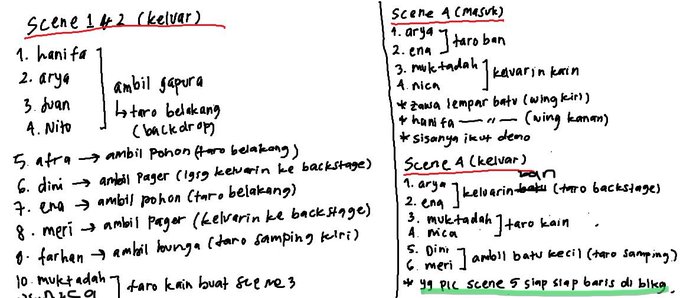 Scene 1 & 2 (keluar)
1. hanifa
2. arya
3. Juan
4. Nito
ambil gapura
↳ taro belakang
(backdrop)
5. afra → ambil pohon (taro belakang)
6. dini → ambil pager (lgsg keluarin ke backstage)
7. ena → ambil pohon (taro belakang)
8. meri → ambil pager (keluarin ke backstage)
9. farhan → ambil bunga (taro samping kiri)
10. muktadah
taro kain buat scene 3
Scene 4 (masuk)
1. arya
2. ena
taro ban
3. muktadah
4. nica
keluarin kain
* zawa lempar batu (wing kiri)
* hanifa —〃— (wing kanan)
* sisanya ikut demo
Scene 4 (keluar)
1. arya
2. ena
keluarin ban (taro backstage)
3. muktadah
4. nica
taro kain
5. Dini
6. meri
ambil batu kecil (taro samping)
* yg PIC scene 5 siap siap baris di blkg